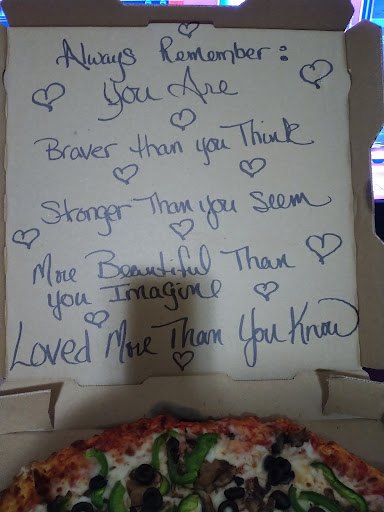 Always Remember:
You Are
Braver than you Think
Stronger Than you Seem
More Beautiful Than
you Imagine
Loved More Than You Know